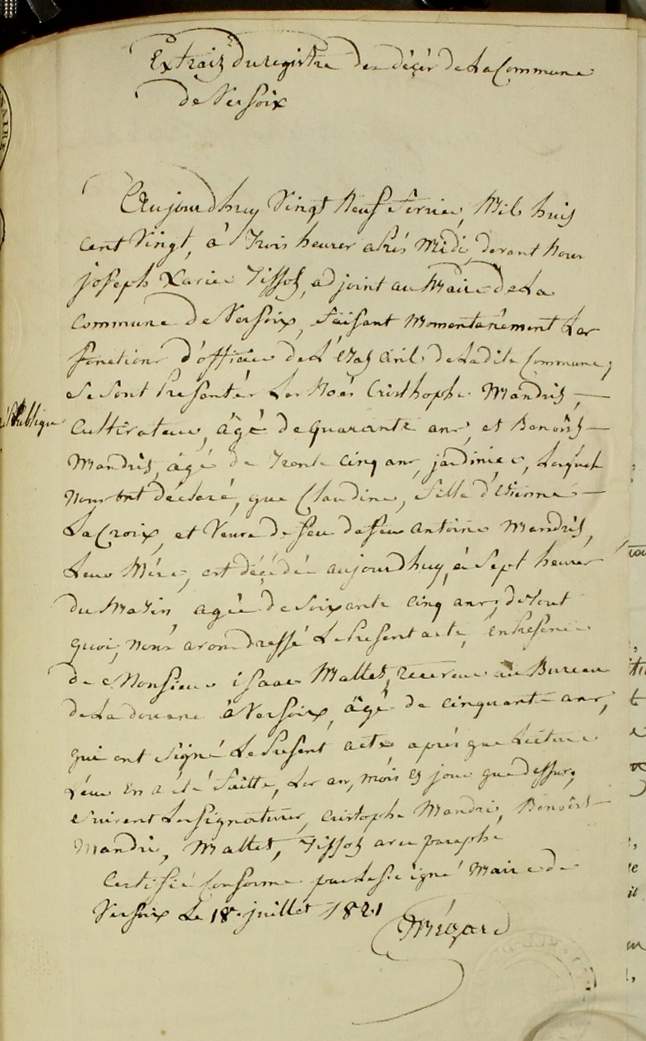 Extrait du registre des décès de La Commune
de Versoix
Aujourdhuy Vingt Neuf fevrier, Mil huit
Cent Vingt, à trois heures après Midi, devant Nous
joseph Xavier Tissot, adjoint au Maire de La
Commune de Versoix, faisant Momentanément Les
fonctions d'officier de L'Etat Civil de Ladite Commune,
Se Sont Presentés Les Cristhophe Mandrit,
Cultivateur, âgé de quarante ans, et Benoît
Mandrit, âgé de trente cinq ans, jardinier, Lesquels
Nous ont déclaré, que Claudine, fille d'Etienne
LaCroix, et Veuve de feu de feu antoine Mandrit,
Leur Mére, est décédée aujourdhuy, à Sept heures
du Matin agée de Soixante Cinq ans; de tout
quoi, nous avons dressé Le Present acte, en Presence
de Monsieur isaac Mallet, receveur au Bureau
de La douane à Versoix, âgé de cinquante ans,
qui ont signé Le Present acte après que Lecture
Leur En a été faitte, Les an, mois et jour que dessus,
Suivent Les signatures, Cristophe Mandri, Benoît
Mandri, Mallet, Tissot avec paraphe
Certifié Conforme par Le Maire de
Versoix Le 18 juillet 1821
Mégard
Publique